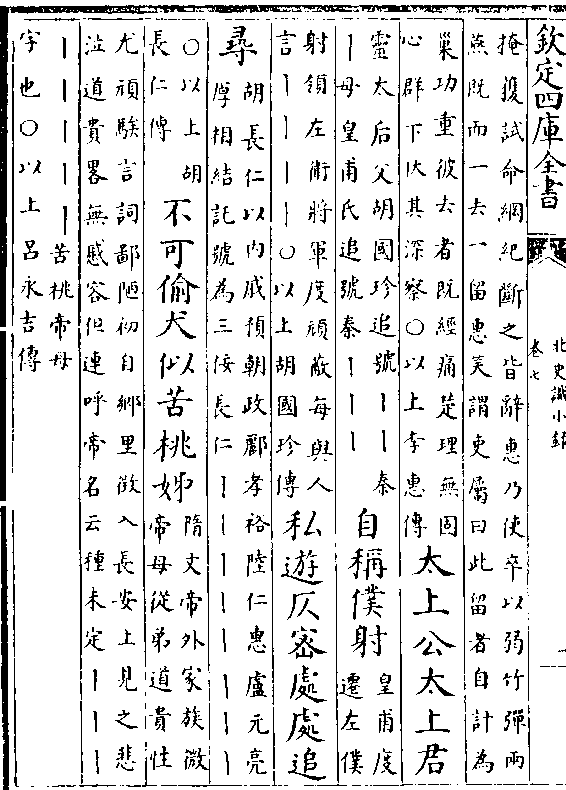 欽定四庫全書
北史識小錄
卷七
掩獲試命綱紀斷之皆辭惠乃使卒以弱竹彈兩
燕既而一去一留惠笑謂吏屬曰此留者自計為
巢功重彼去者既經痛楚理無固
心群下伏其深察○以上李惠傳
太上公太上君
靈太后父胡國珍追號丨丨丨秦
丨母皇甫氏追號秦丨丨丨
自稱僕射
皇甫度
遷左僕
射領左衛將軍度頑蔽每與人
言丨丨丨丨○以上胡國珍傳
私遊仄密處處追
尋
胡長仁以內戚預朝政酈孝裕陸仁惠盧元亮
厚相結託號為三佞長仁丨丨丨丨丨丨丨
○以上胡
長仁傳
不可偷犬似苦桃姊
隋文帝外家族微
帝母從弟道貴性
尤頑騃言詞鄙陋初自鄉里徵入長安上見之悲
泣道貴畧無慼容但連呼帝名云種未定丨丨丨
丨丨丨丨丨苦桃帝母
字也○以上呂永吉傳